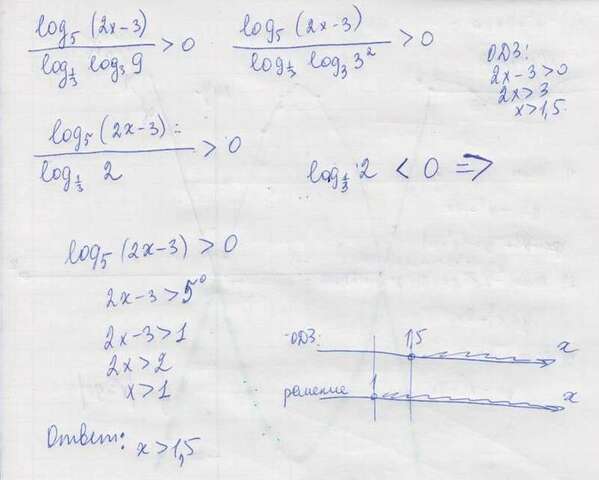 log₅(2x-3) / log_{1/3} log₃9 > 0     log₅(2x-3) / log_{1/3} log₃3² > 0
ОДЗ:
2x-3>0
2x>3
x>1,5
log₅(2x-3) / log_{1/3} 2 > 0     log_{1/3} 2 < 0 =>
log₅(2x-3) > 0
2x-3>5⁰
2x-3>1
2x>2
x>1
ОДЗ: 1,5 x
решение 1 x
Ответ: x>1,5